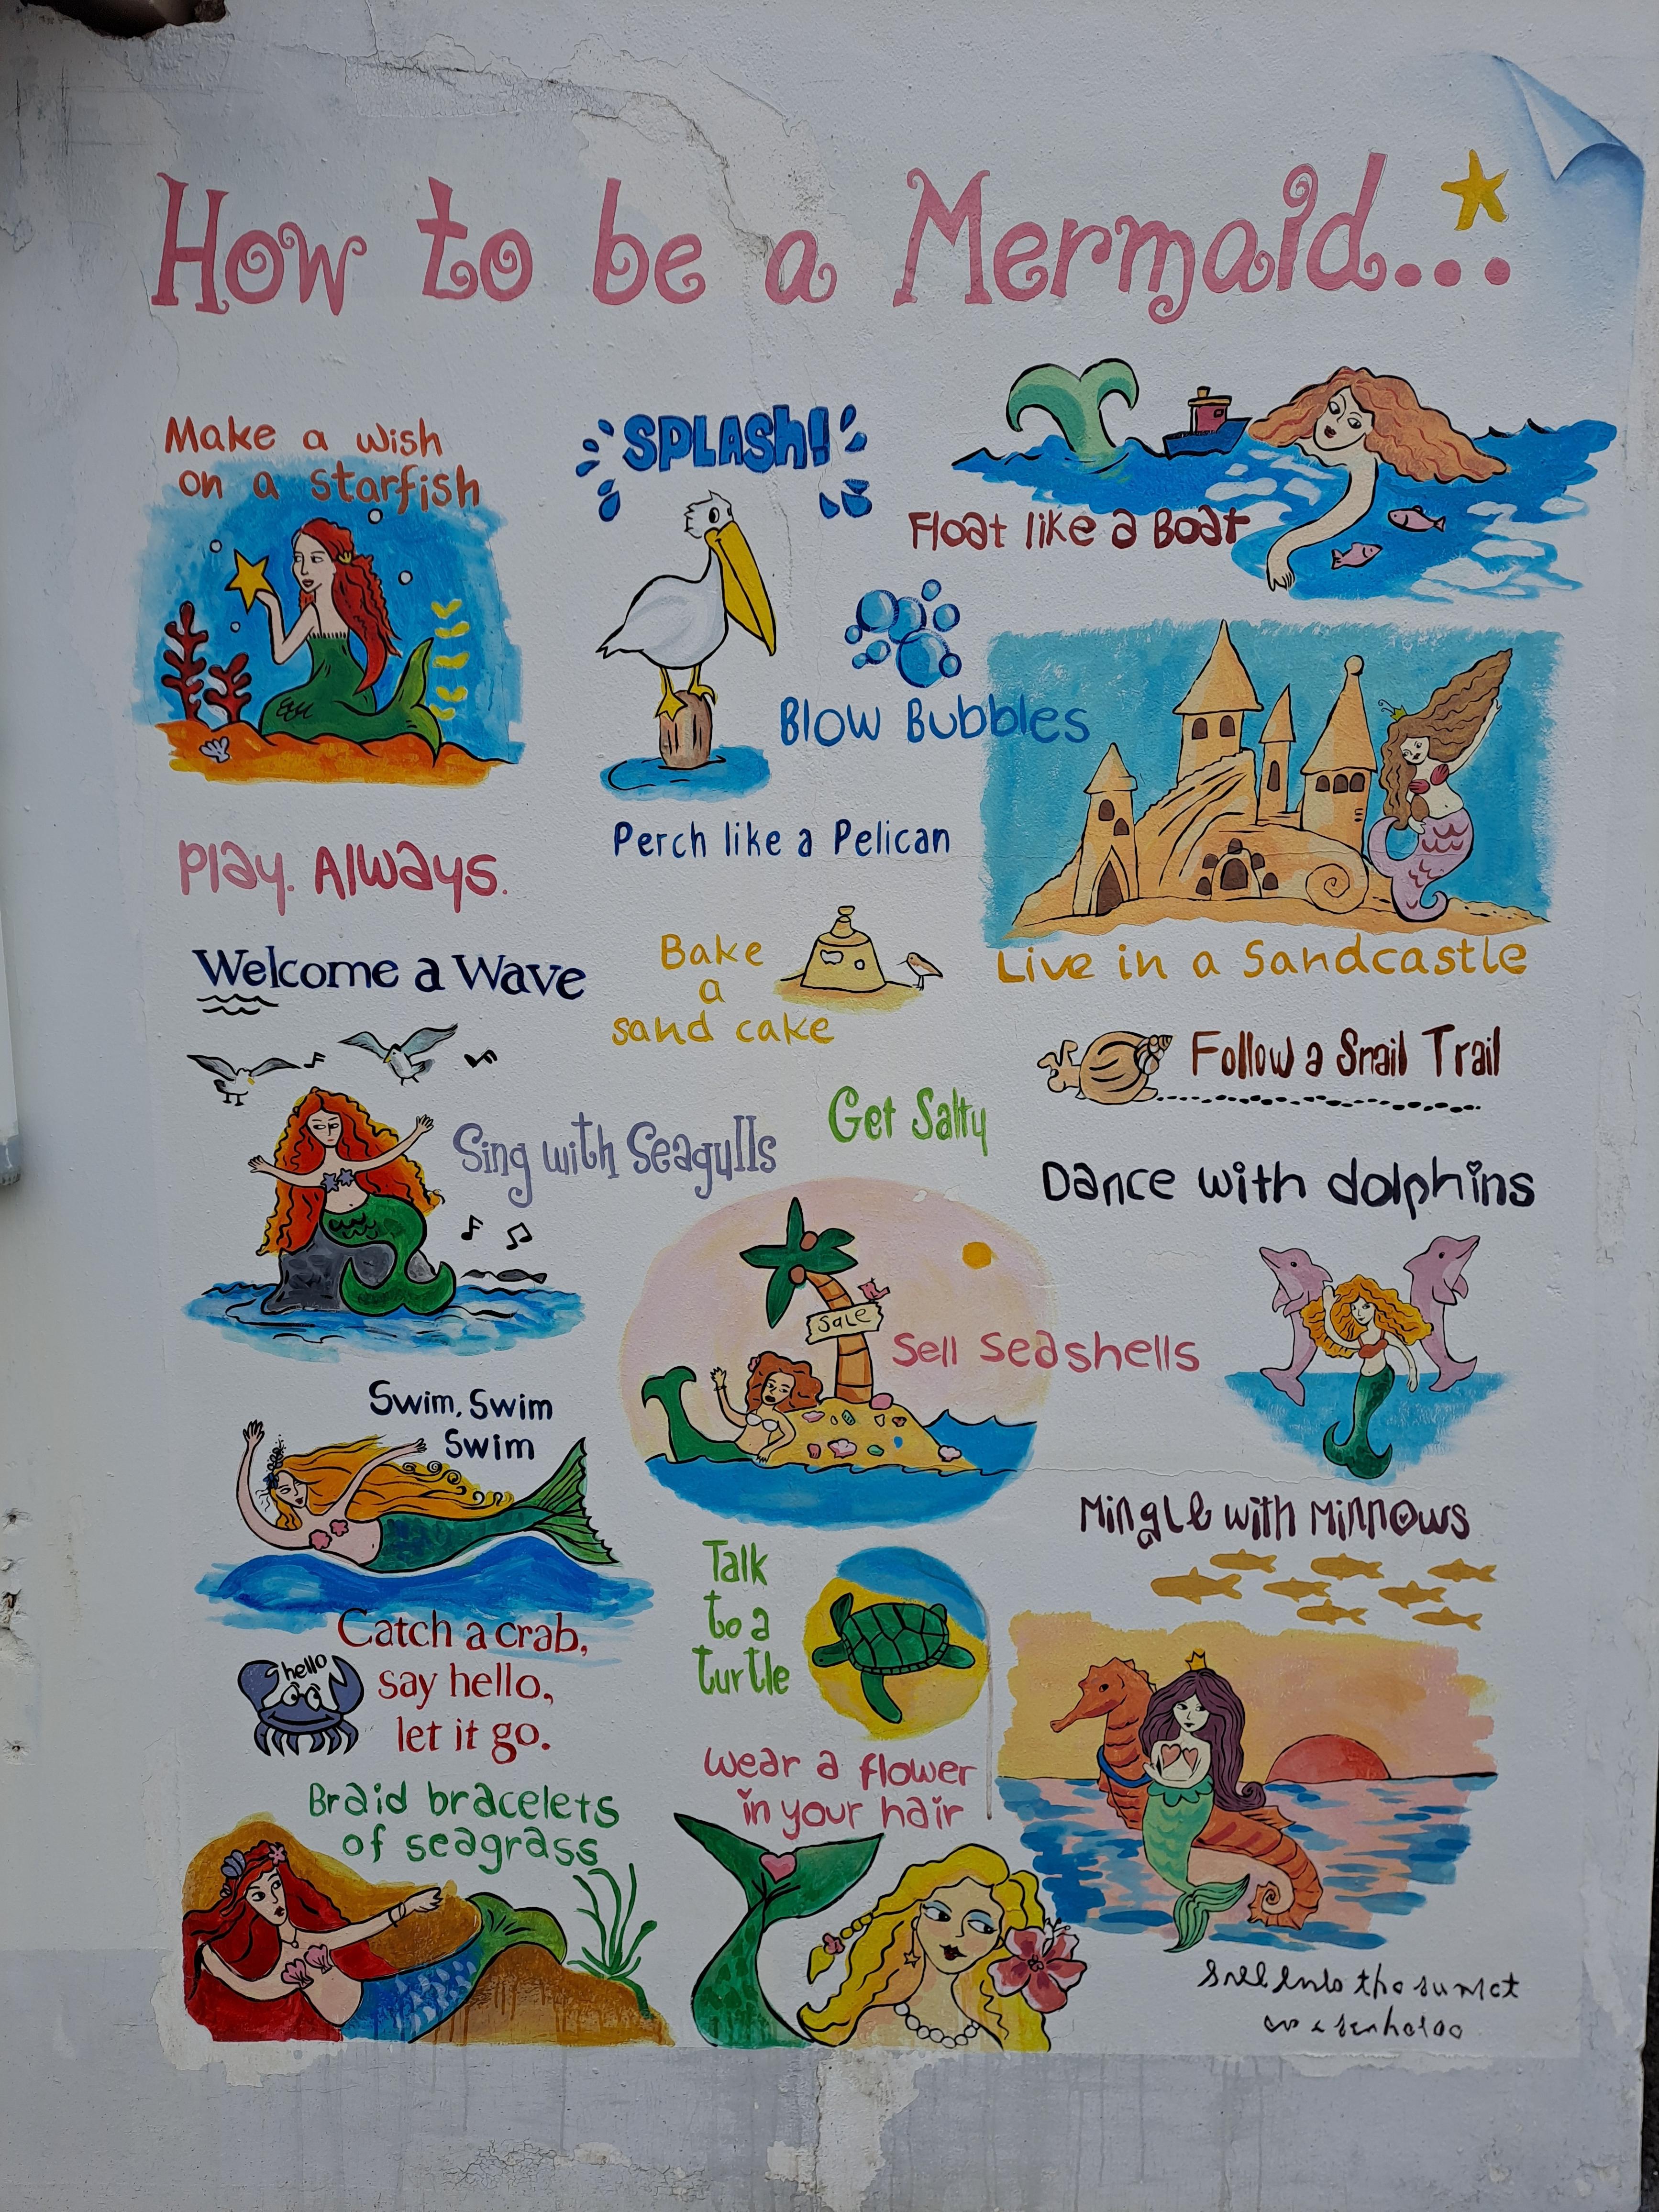 How to be a Mermaid...
Make a wish
on a starfish
SPLASH!
Float like a Boat
Blow Bubbles
Perch like a Pelican
Play. Always.
Live in a Sandcastle
Welcome a Wave
Bake
a
sand cake
Follow a Snail Trail
Sing with Seagulls
Get Salty
Dance with dolphins
Sale
Sell Seashells
Swim, Swim
Swim
Mingle with Minnows
Talk
to a
turtle
Catch a crab,
say hello,
let it go.
hello
wear a flower
in your hair
Braid bracelets
of seagrass
the sunset